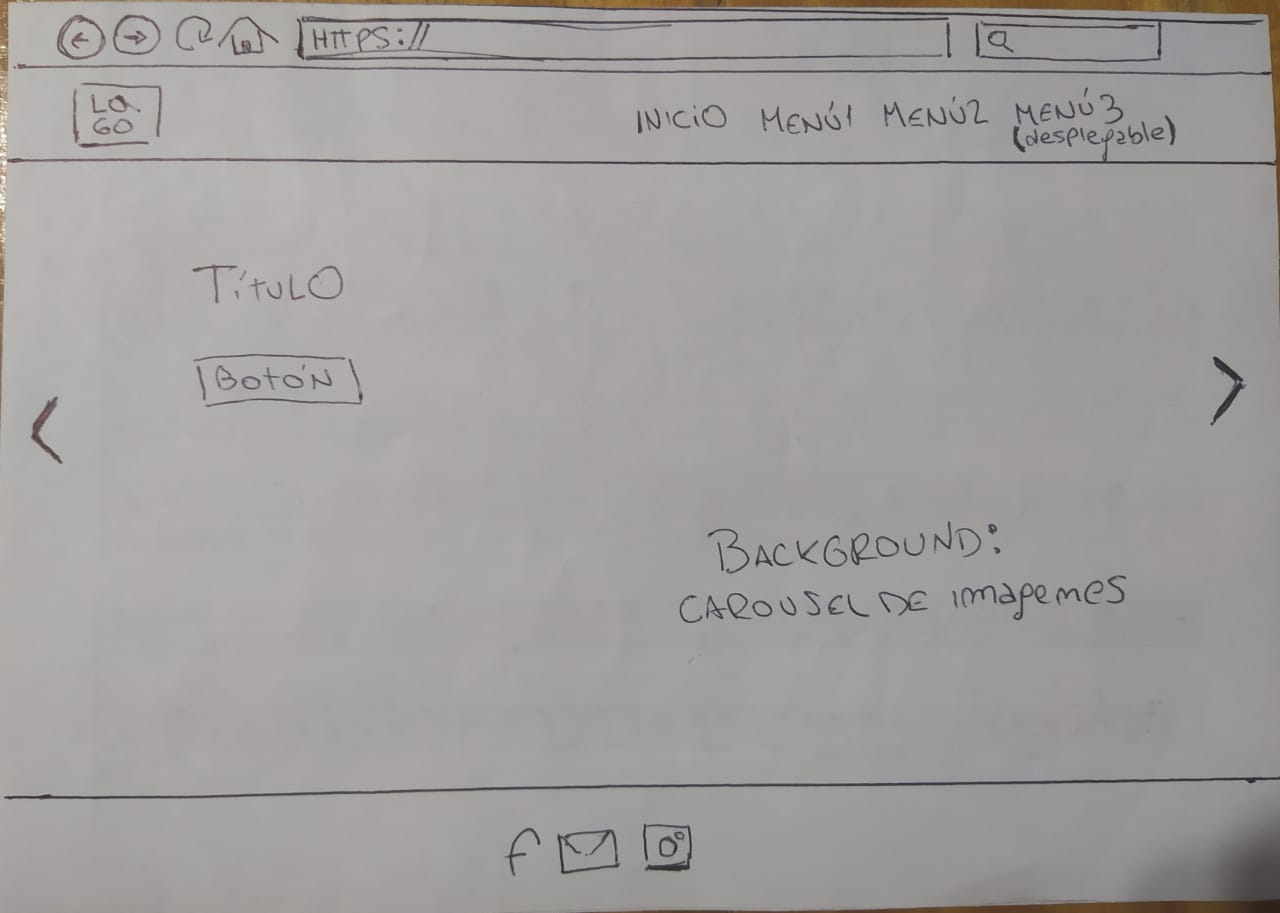 HTTPS://
LO
GO
INICIO MENÚ1 MENÚ2 MENÚ3
(desplegable)
TÍTULO
BOTÓN
BACKGROUND:
CAROUSEL DE imagenes
f